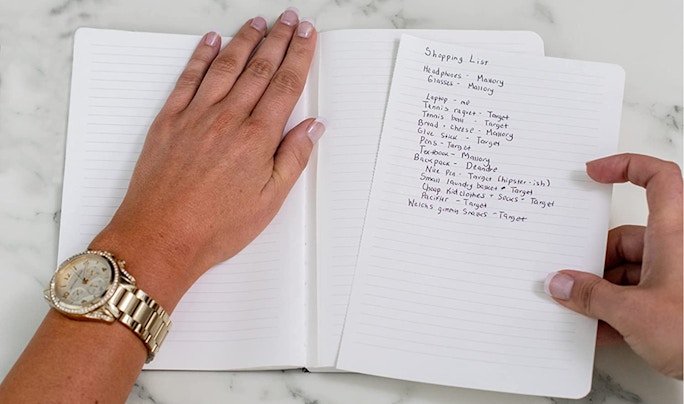 Shopping List
Headphones - Mallory
Glasses - Mallory
Laptop - me
Tennis raquet - Target
Tennis ball - Target
Bread + cheese - Mallory
Glue Stick - Target
Pens - Target
Textbook - Mallory
Backpack - Deandre
Nice Pin - Target (hipster-ish)
Small laundry basket - Target
Cheap Kid clothes + Socks - Target
Pacifier - Target
Welchs gimmi Snacks - Target